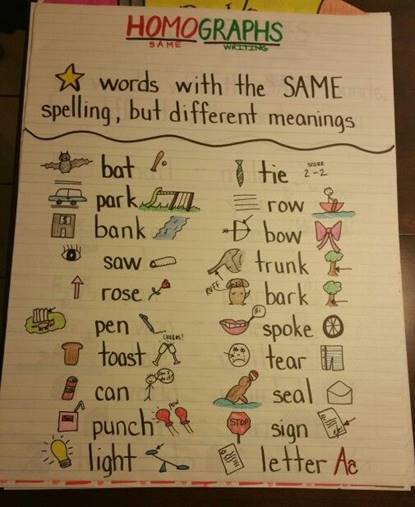 HOMOGRAPHS
SAME WRITING
words with the SAME
spelling, but different meanings
bat
park
bank
saw
rose
pen
toast
CHEERS!
can
punch
POW
light
tie SCORE 2-2
row
bow
trunk
RUFF bark
Hi spoke
tear
seal
STOP sign
letter Aa